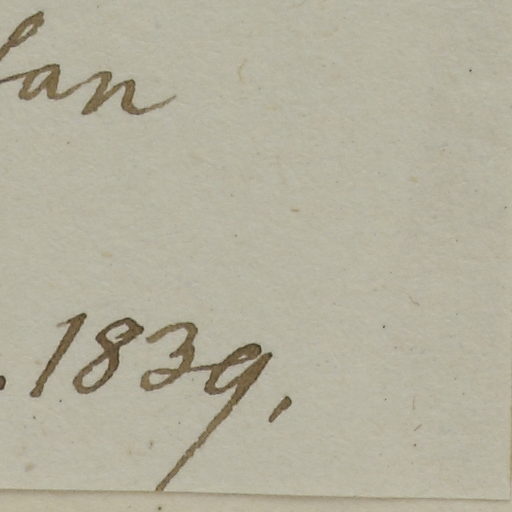 lan
. 1839.